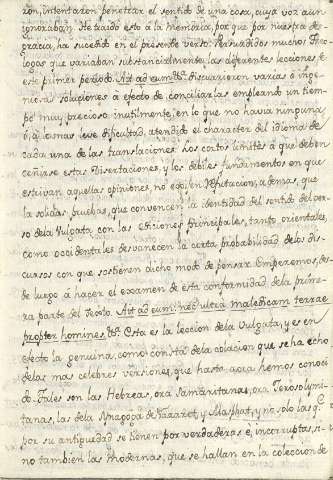 zon, intentaron penetrar el sentido de una cosa, cuya voz aun
ignoraban. He traido esto à la memòria, por que por nuestra de-
gracia, ha sucedido en el presente verso. Persuadidos muchos Theo-
logos que variaban substancialmente las diferentes lecciones, de
este primer periodo. Ait ad eum &c. discurrieron varias è inge-
niosas soluciones à efecto de conciliarlas, empleando un tiem-
po muy precioso inutilmente, en lo que no havia ninguna
ò à lo mas leve dificultad, atendido el character del idioma de
cada una de las translaciones. Los cortos limites à que deben
ceñirse estas Disertaciones, y los dèbiles fundamentos en que
estrivan aquellas opiniones, no exigen refutacion; ademas, que
la solidas pruebas, que convencen la identidad del sentido del ver-
so de la Vulgata con las ediciones principales, tanto orientales,
como occidentales desvanecen la cierta probabilidad de los dis-
cursos con que sostienen dicho modo de pensar. Empezemos, des-
de luego à hacer el examen de esta conformidad de la prime-
ra parte del Texto. Ait ad eum: nec ultra maledicam terrae
propter homines &c. Esta es la leccion de la Vulgata, y es en
efecto la genuina, como consta de la colacion que se ha echo
de las mas cèlebres versiones, que hasta aora hemos conoci-
do. Tales son las Hebreas, ora Samaritanas, ora Jerosolymi-
tanas, las de la Synagoga de Nazaret, y Maphat, y no solo las q.e
por su antiguedad se tienen por verdaderas è, incorruptas, si-
no tambien las modernas, que se hallan en la coleccion de